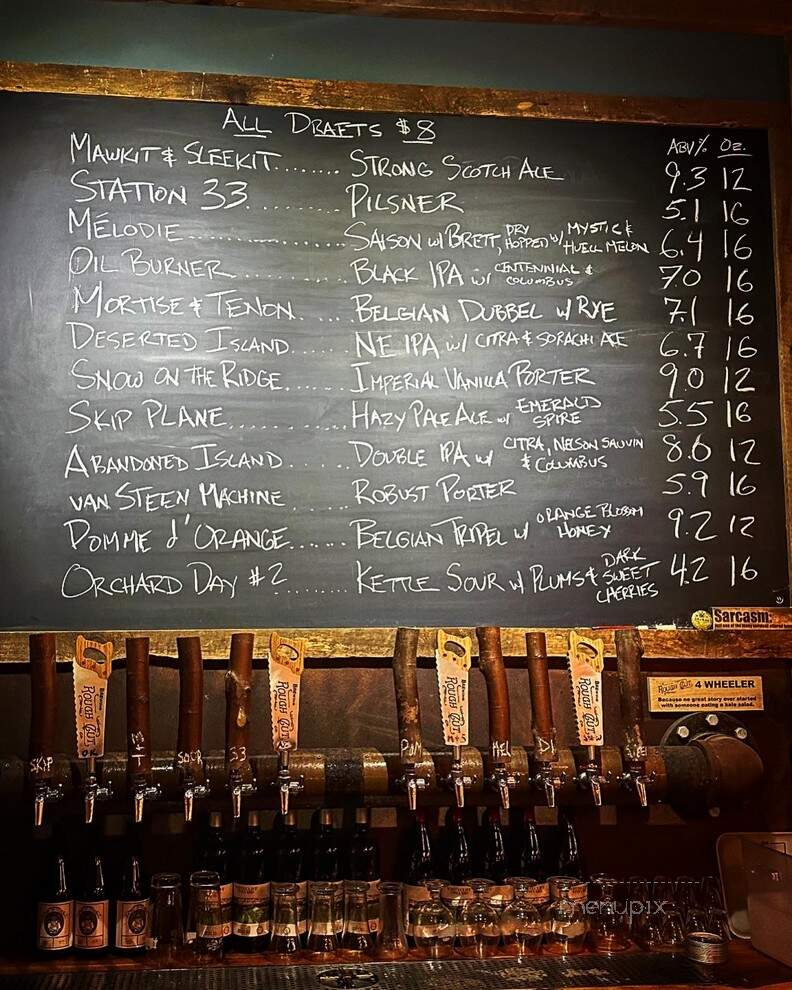 ALL DRAFTS $8
ABV% OZ.
MAWKIT & SLEEKIT........ STRONG SCOTCH ALE 9.3 12
STATION 33.......... PILSNER 5.1 16
MÉLODIE................ SAISON w/ BRETT, DRY HOPPED w/ MYSTIC & HUELL MELON 6.4 16
OIL BURNER............ BLACK IPA w/ CENTENNIAL & COLUMBUS 7.0 16
MORTISE & TENON...... BELGIAN DUBBEL w/ RYE 7.1 16
DESERTED ISLAND...... NE IPA w/ CITRA & SORACHI ACE 6.7 16
SNOW ON THE RIDGE...... IMPERIAL VANILLA PORTER 9.0 12
SKIP PLANE............ HAZY PALE ALE w/ EMERALD SPIRE 5.5 16
ABANDONED ISLAND...... DOUBLE IPA w/ CITRA, NELSON SAUVIN & COLUMBUS 8.6 12
VAN STEEN MACHINE...... ROBUST PORTER 5.9 16
POMME d'ORANGE...... BELGIAN TRIPEL w/ ORANGE BLOSSOM HONEY 9.2 12
ORCHARD DAY #2........ KETTLE SOUR w/ PLUMS & DARK SWEET CHERRIES 4.2 16
Sarcasm:
ROUGH CUT 4 WHEELER
Because no great story ever started
with someone eating a kale salad.
ROUGH CUT
ROUGH CUT
ROUGH CUT
ROUGH CUT
SKIP
T+M
SOUR
33
POM
MEL
DI
menupix